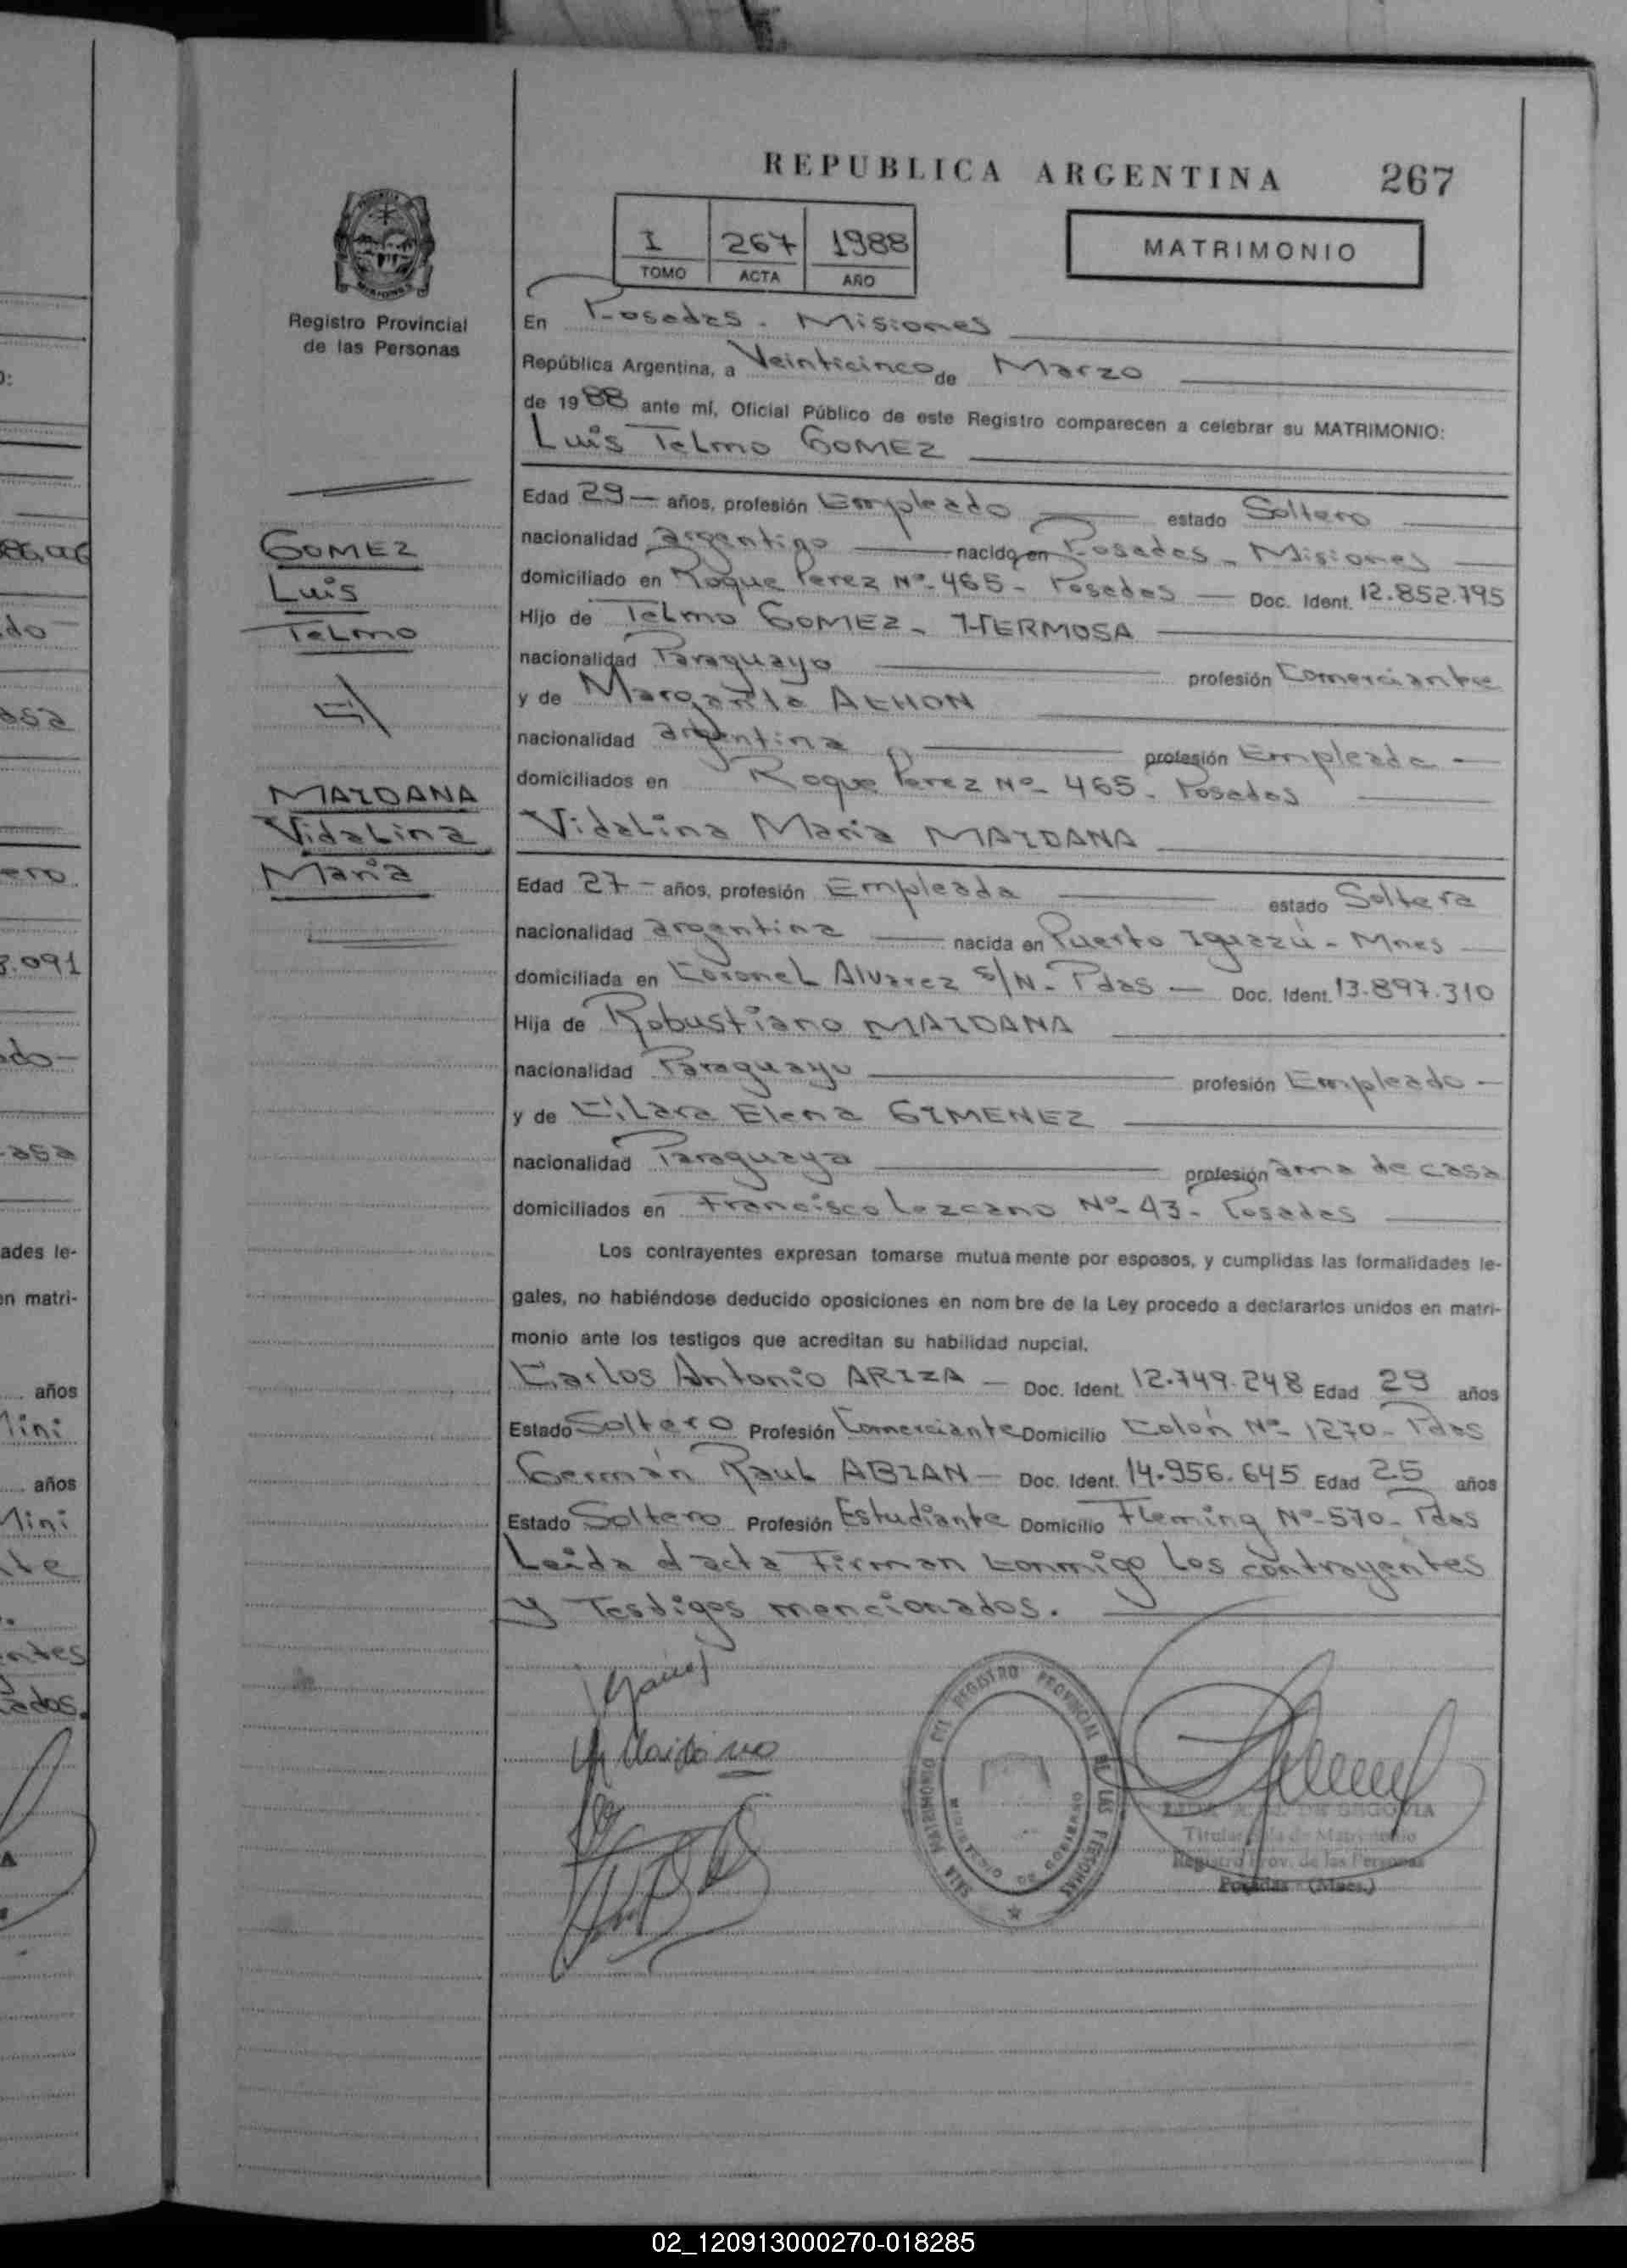 REPUBLICA ARGENTINA 267
I 267 1988
TOMO ACTA AÑO
MATRIMONIO
Registro Provincial
de las Personas
En Posadas - Misiones
República Argentina, a Veinticinco de Marzo
de 1988 ante mí, Oficial Público de este Registro comparecen a celebrar su MATRIMONIO:
Luis Telmo GOMEZ
Edad 29 — años, profesión Empleado estado Soltero
nacionalidad argentino nacido en Posadas - Misiones
domiciliado en Roque Perez Nº 465 - Posadas — Doc. Ident. 12.852.795
Hijo de Telmo GOMEZ - HERMOSA
nacionalidad Paraguayo profesión Comerciante
y de Margarita
nacionalidad argentina profesión Empleada —
domiciliados en Roque Perez Nº 465 - Posadas
Vidalina Maria MAIDANA
Edad 27 — años, profesión Empleada estado Soltera
nacionalidad argentina nacida en Puerto Iguazú - Mnes
domiciliada en Coronel Alvarez S/N - Pdas — Doc. Ident. 13.897.310
Hija de Robustiano MAIDANA
nacionalidad Paraguayo profesión Empleado —
y de Elena GIMENEZ
nacionalidad Paraguaya profesión ama de casa
domiciliados en Francisco Lezcano Nº 43 - Posadas
Los contrayentes expresan tomarse mutua mente por esposos, y cumplidas las formalidades le-
gales, no habiéndose deducido oposiciones en nom bre de la Ley procedo a declararlos unidos en matri-
monio ante los testigos que acreditan su habilidad nupcial.
Carlos Antonio ARIZA — Doc. Ident. 12.749.248 Edad 29 años
Estado Soltero Profesión Comerciante Domicilio Colón Nº 1270 - Pdas
Germán Raul ABIAN — Doc. Ident. 14.956.645 Edad 25 años
Estado Soltero Profesión Estudiante Domicilio Fleming Nº 570 - Pdas
Leida el acta Firman conmigo los contrayentes
y Testigos mencionados.
GOMEZ
Luis
Telmo
MAIDANA
Vidalina
Maria
SALA MATRIMONIO DEL REGISTRO PROVINCIAL DE LAS PERSONAS
MINISTERIO DE GOBIERNO
DE SEGOVIA
Titular Sala de Matrimonio
Registro Prov. de las Personas
Posadas - (Mnes.)
02_120913000270-018285